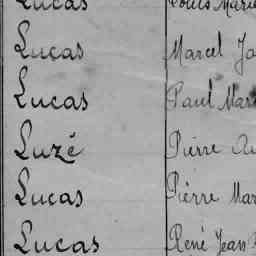 Lucas Louis Marie
Lucas Marcel
Lucas Paul
Luzé Pierre
Lucas Pierre Mar
Lucas René Jean